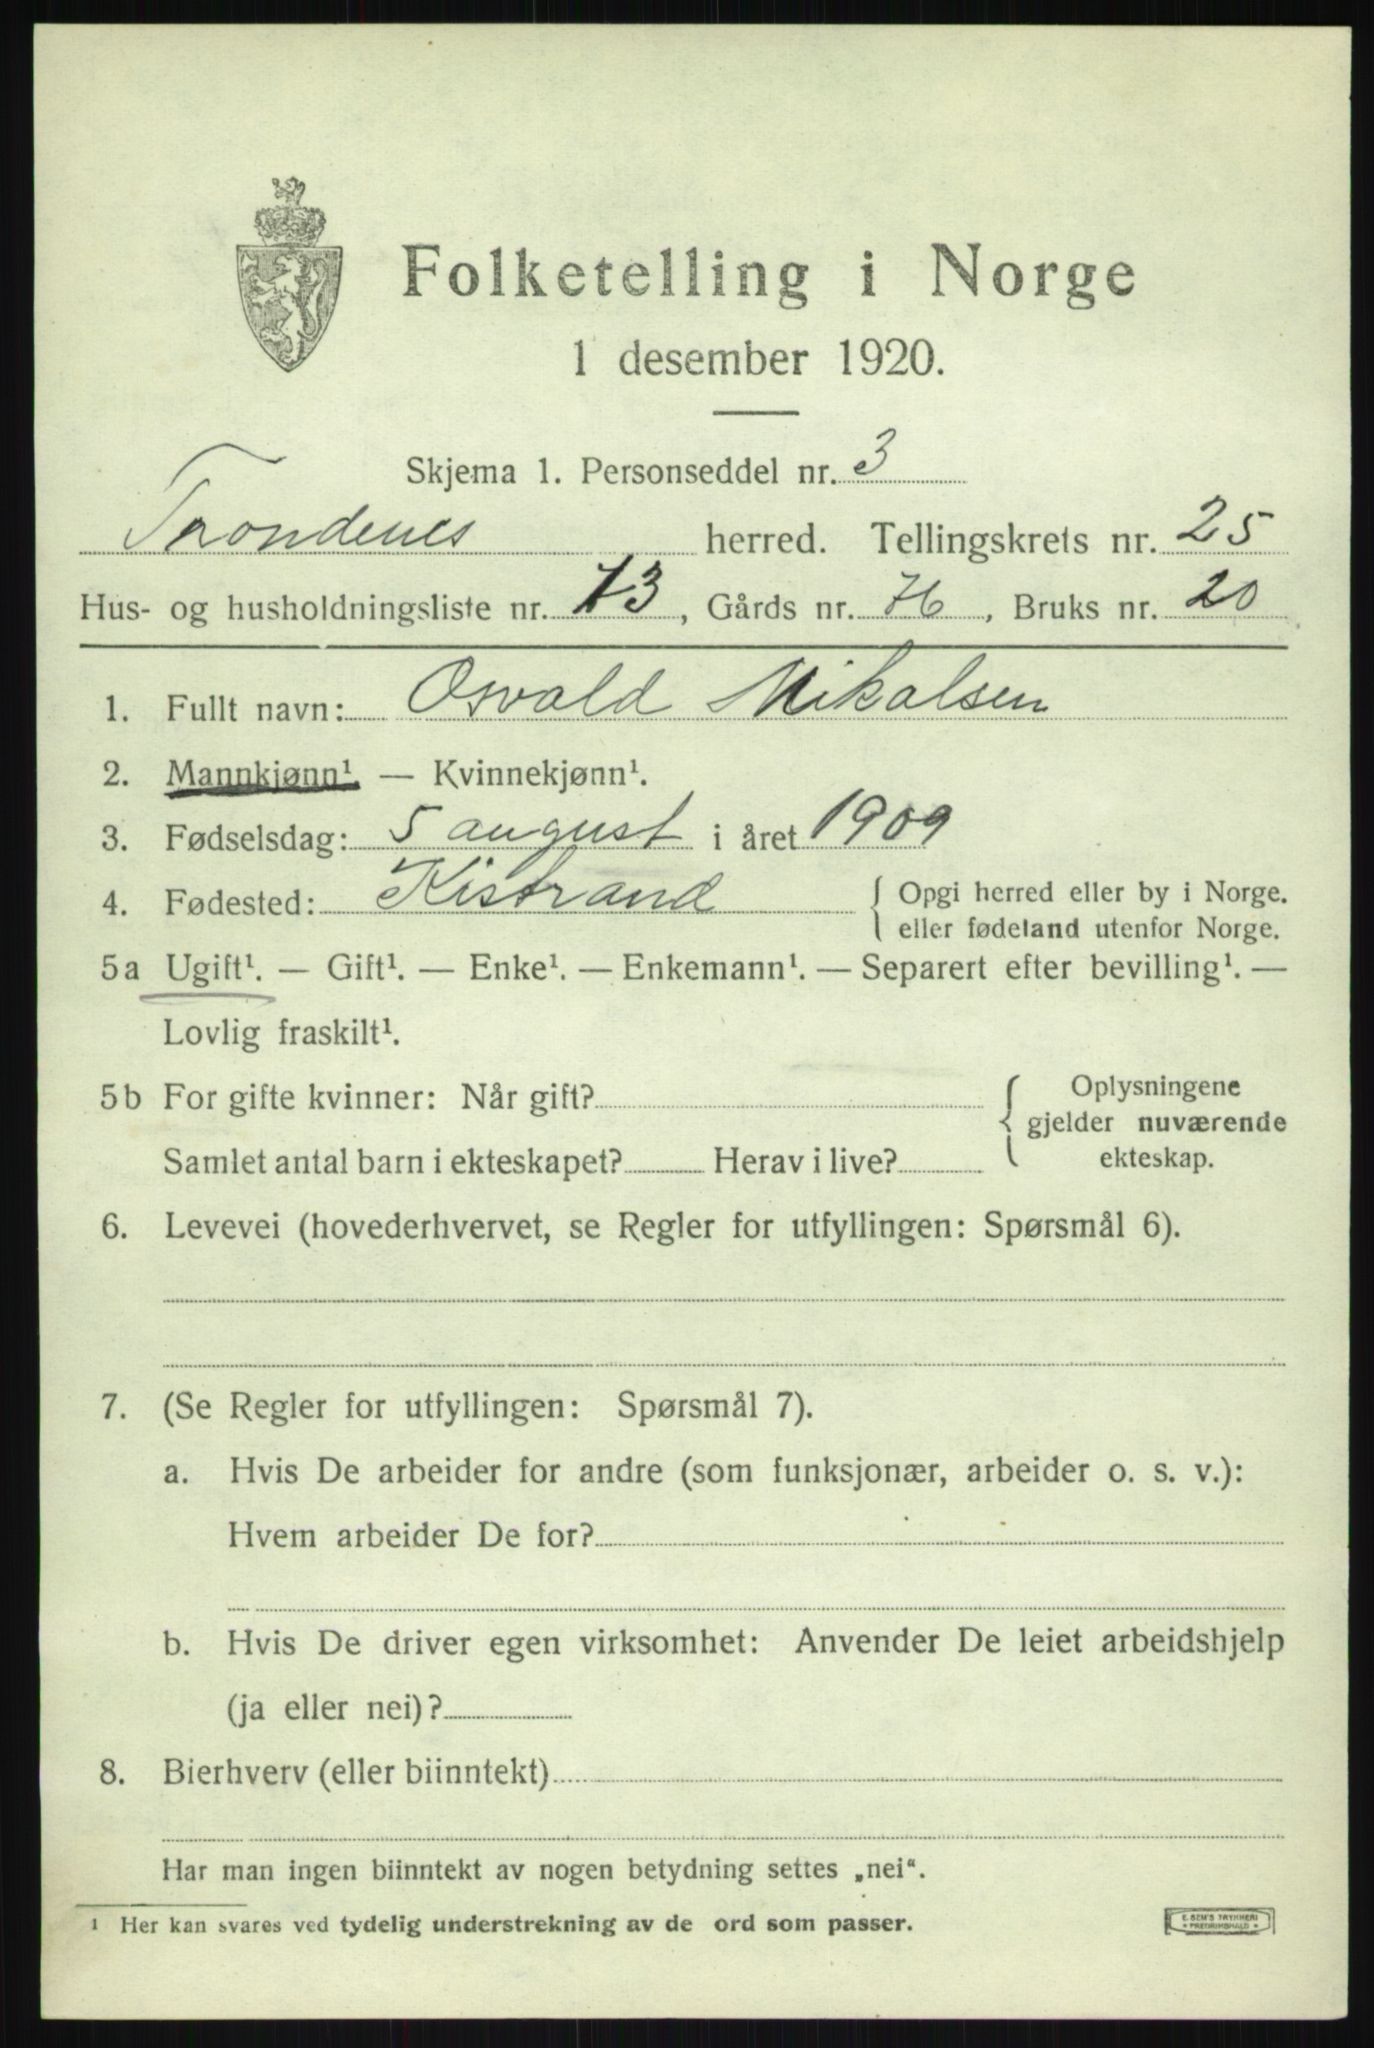 Folketelling i Norge
1 desember 1920.
Skjema 1. Personseddel nr. 3
Trondenes herred. Tellingskrets nr. 25
Hus- og husholdningsliste nr. 13, Gårds nr. 76, Bruks nr. 20
1. Fullt navn: Osvald Mikalsen
2. Mannkjønn¹. — Kvinnekjønn¹.
3. Fødselsdag: 5 august i året 1909
4. Fødested: Kistrand { Opgi herred eller by i Norge.
eller fødeland utenfor Norge.
5a Ugift¹. — Gift¹. — Enke¹. — Enkemann¹. — Separert efter bevilling¹. —
Lovlig fraskilt¹.
5b For gifte kvinner: Når gift? { Oplysningene
gjelder nuværende
Samlet antal barn i ekteskapet? Herav i live? ekteskap.
6. Levevei (hovederhvervet, se Regler for utfyllingen: Spørsmål 6).
7. (Se Regler for utfyllingen: Spørsmål 7).
a. Hvis De arbeider for andre (som funksjonær, arbeider o. s. v.):
Hvem arbeider De for?
b. Hvis De driver egen virksomhet: Anvender De leiet arbeidshjelp
(ja eller nei)?
8. Bierhverv (eller biinntekt)
Har man ingen biinntekt av nogen betydning settes „nei“.
¹ Her kan svares ved tydelig understrekning av de ord som passer.
E. SEM'S TRYKKERI
* FREDRIKSHALD *